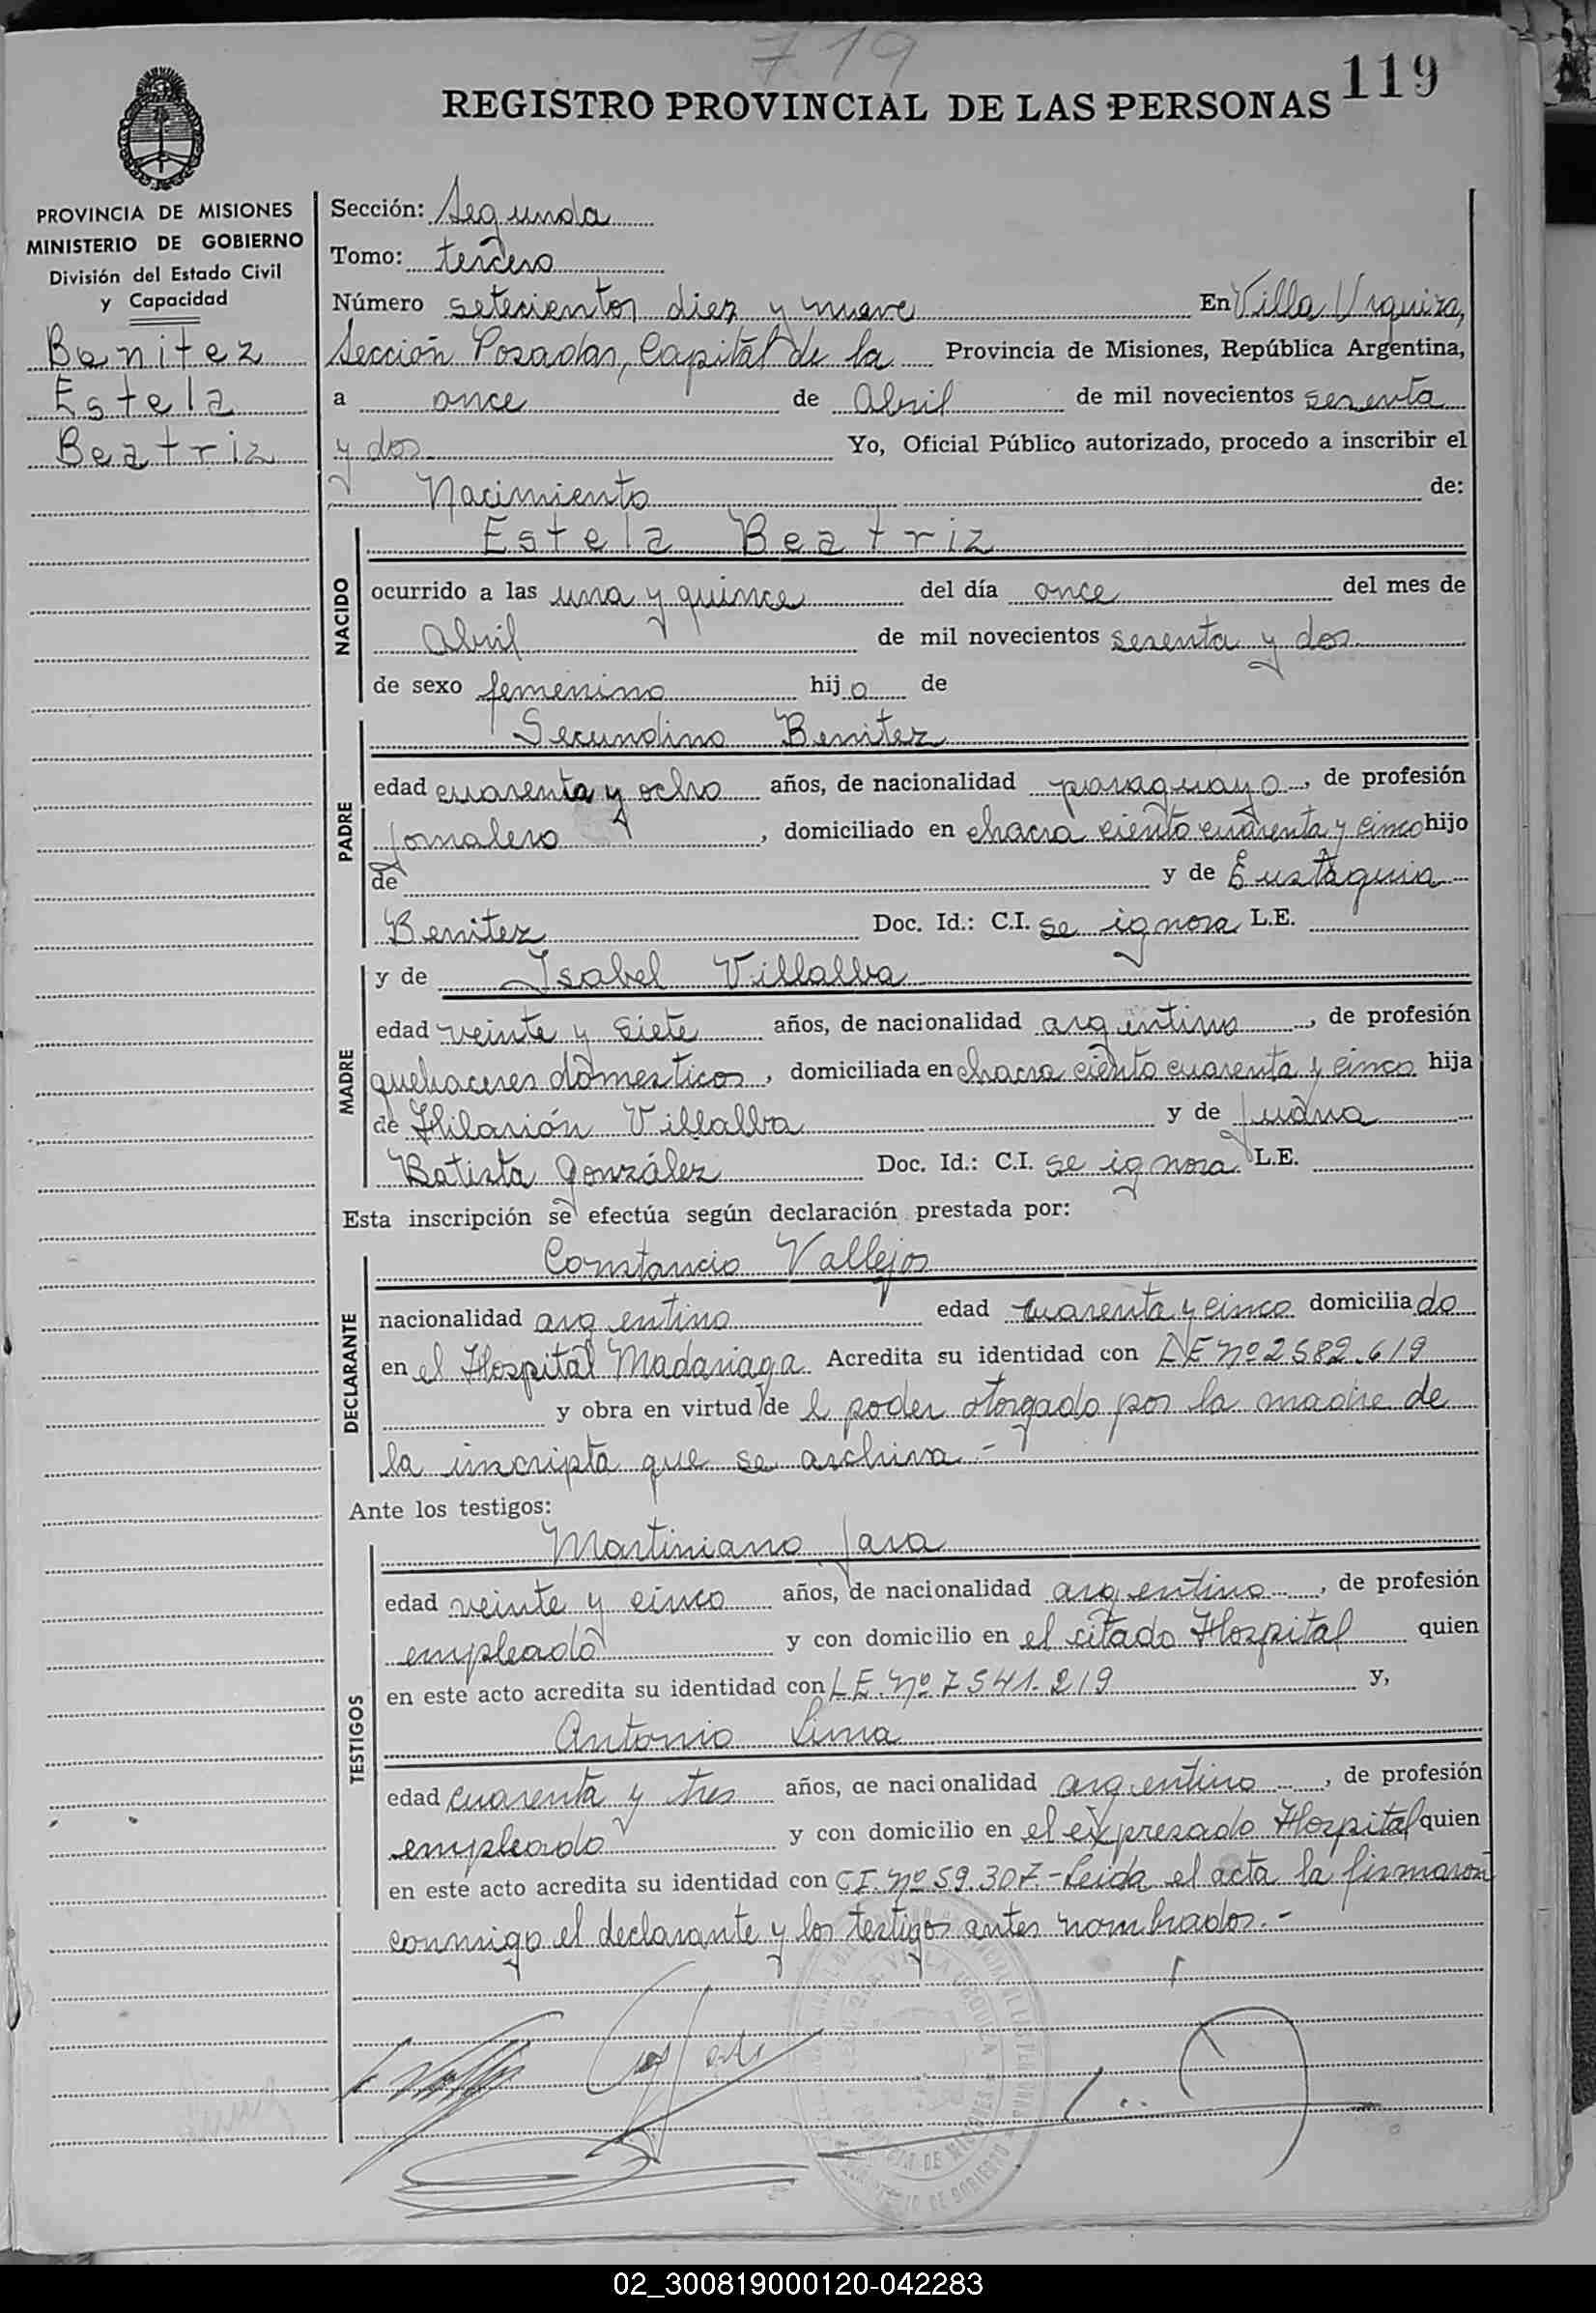 719
119
REGISTRO PROVINCIAL DE LAS PERSONAS
PROVINCIA DE MISIONES
MINISTERIO DE GOBIERNO
División del Estado Civil
y Capacidad
Benitez
Estela
Beatriz
Sección: Segunda
Tomo: tercero
Número setecientos diez y nueve En Villa Urquiza,
Sección Posadas, Capital de la Provincia de Misiones, República Argentina,
a once de Abril de mil novecientos sesenta
y dos Yo, Oficial Público autorizado, procedo a inscribir el
Nacimiento de:
NACIDO
Estela Beatriz
ocurrido a las una y quince del día once del mes de
Abril de mil novecientos sesenta y dos
de sexo femenino hijo de
PADRE
Secundino Benitez
edad cuarenta y ocho años, de nacionalidad paraguayo, de profesión
jornalero, domiciliado en chacra ciento cuarenta y cinco hijo
de y de Eustaquia
Benitez Doc. Id.: C.I. se ignora L.E.
MADRE
y de Isabel Villalba
edad veinte y siete años, de nacionalidad argentina, de profesión
quehaceres domesticos, domiciliada en chacra ciento cuarenta y cinco hija
de Hilarión Villalba y de Juana
Batista González Doc. Id.: C.I. se ignora L.E.
Esta inscripción se efectúa según declaración prestada por:
DECLARANTE
Constancio Vallejos
nacionalidad argentino edad cuarenta y cinco domiciliado
en el Hospital Madariaga Acredita su identidad con LE nº 2582.619
y obra en virtud de l poder otorgado por la madre de
la inscripta que se archiva.-
Ante los testigos:
TESTIGOS
Martiniano Jara
edad veinte y cinco años, de nacionalidad argentino, de profesión
empleado y con domicilio en el citado Hospital quien
en este acto acredita su identidad con LE. nº 7541.219 y,
Antonio Lima
edad cuarenta y tres años, de nacionalidad argentino, de profesión
empleado y con domicilio en el expresado Hospital quien
en este acto acredita su identidad con CI. nº 59.307-Leida el acta la firmaron
conmigo el declarante y los testigos antes nombrados.-
02_300819000120-042283